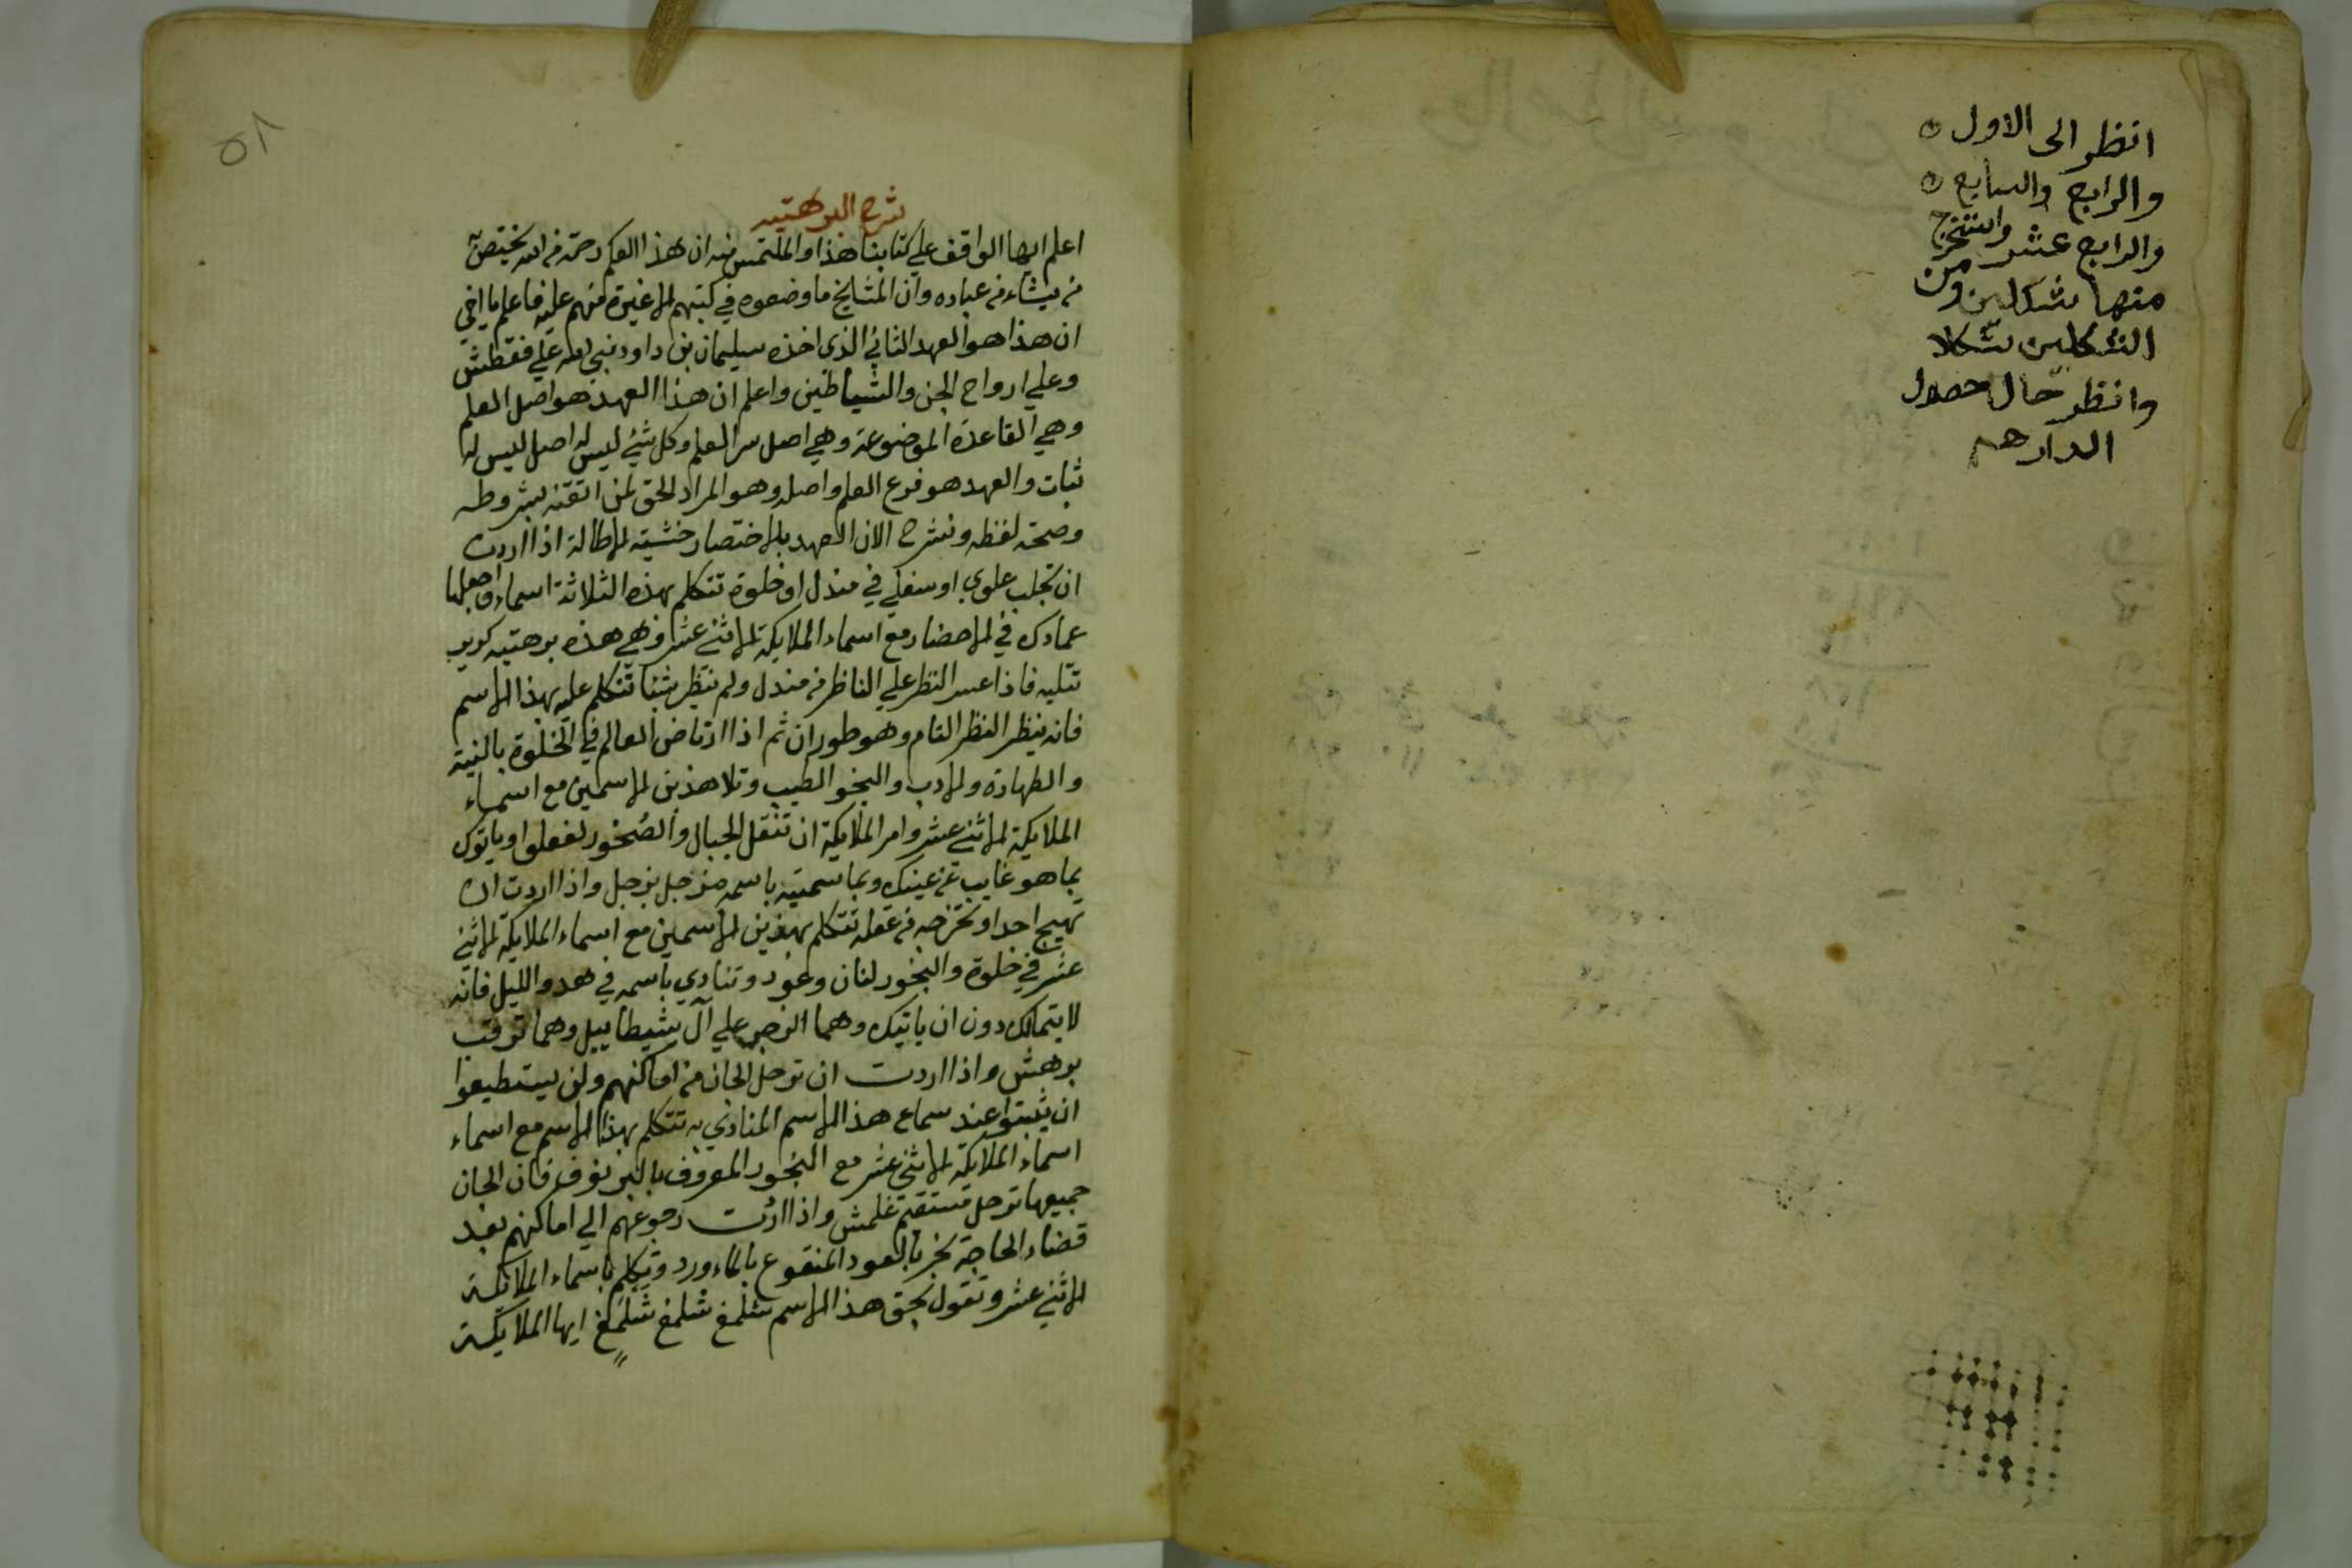 انظر الى الاول ه
والرابع والسابع ه
والرابع عشر واستخرج
منها شكلين ومن
الشكلين شكلا
وانظر حال حصول
الدارهم
٥٨
شرح البرهتيه
اعلم ايها الواقف علي كتابنا هذا والملتمس منه ان هذا العلم رحمة من الله يختص به
من يشاء من عباده وان المشايخ ما وضعوه في كتبهم الا غيرة منهم عليه فاعلم يا اخي
ان هذا هو العهد الثاني الذي اخذه سليمان بن داود نبي الله علي فقطش
وعلي ارواح الجن والشياطين واعلم ان هذا العهد هو اصل العلم
وهي القاعدة الموضوعة وهي اصل سر العلم وكل شيء ليس له اصل ليس له
ثبات والعهد هو فرع العلم واصله وهو المراد الحق لمن اتقنه بشروطه
وصحة لفظه ونشرح الان العهد بالاختصار خشية الاطالة اذا اردت
ان تجلب علوي او سفلي في مندل او خلوة تتكلم بهذه الثلاثة اسماء واجعلها
عمادك في الاحضار مع اسماء الملايكة الاثني عشر وهي هذه برهتيه كرير
تتليه فاذا عسر النظر علي الناظر من مندل ولم ينظر شيئا تتكلم عليه بهذا الاسم
فانه ينظر النظر التام وهو طوران ثم اذا ارتاض العالم في الخلوة بالنية
والطهارة والادب والبخور الطيب وتلا هذين الاسمين مع اسماء
الملايكة الاثني عشر وامر الملايكة ان تنقل الجبال والصخور لفعلوا وياتوك
بما هو غايب عن عينك وبما سميته باسمه مزجل بزجل واذا اردت ان
تهيج احدا وتخرجه من عقله تتكلم بهذين الاسمين مع اسماء الملايكة الاثني
عشر في خلوة والبخور لبان وعود وتنادي باسمه في هدو الليل فانه
لا يتمالك دون ان ياتيك وهما الزجر علي آل شيطاييل وهما ترقب
برهش واذا اردت ان ترحل الجان من اماكنهم ولن يستطيعوا
ان يثبتوا عند سماع هذا الاسم المنادي به تتكلم بهذا الاسم مع اسماء
اسماء الملايكة الاثني عشر مع البخور المعروف بالبرنوف فان الجان
جميعها ترحل تستقيم غلمش واذا اردت رجوعهم الي اماكنهم بعد
قضاء الحاجة بخر بالعود المنقوع بالماء ورد وتتكلم باسماء الملائكة
الاثني عشر وتقول بحق هذا الاسم شلمغ شلمغ شلمغ ايها الملايكة